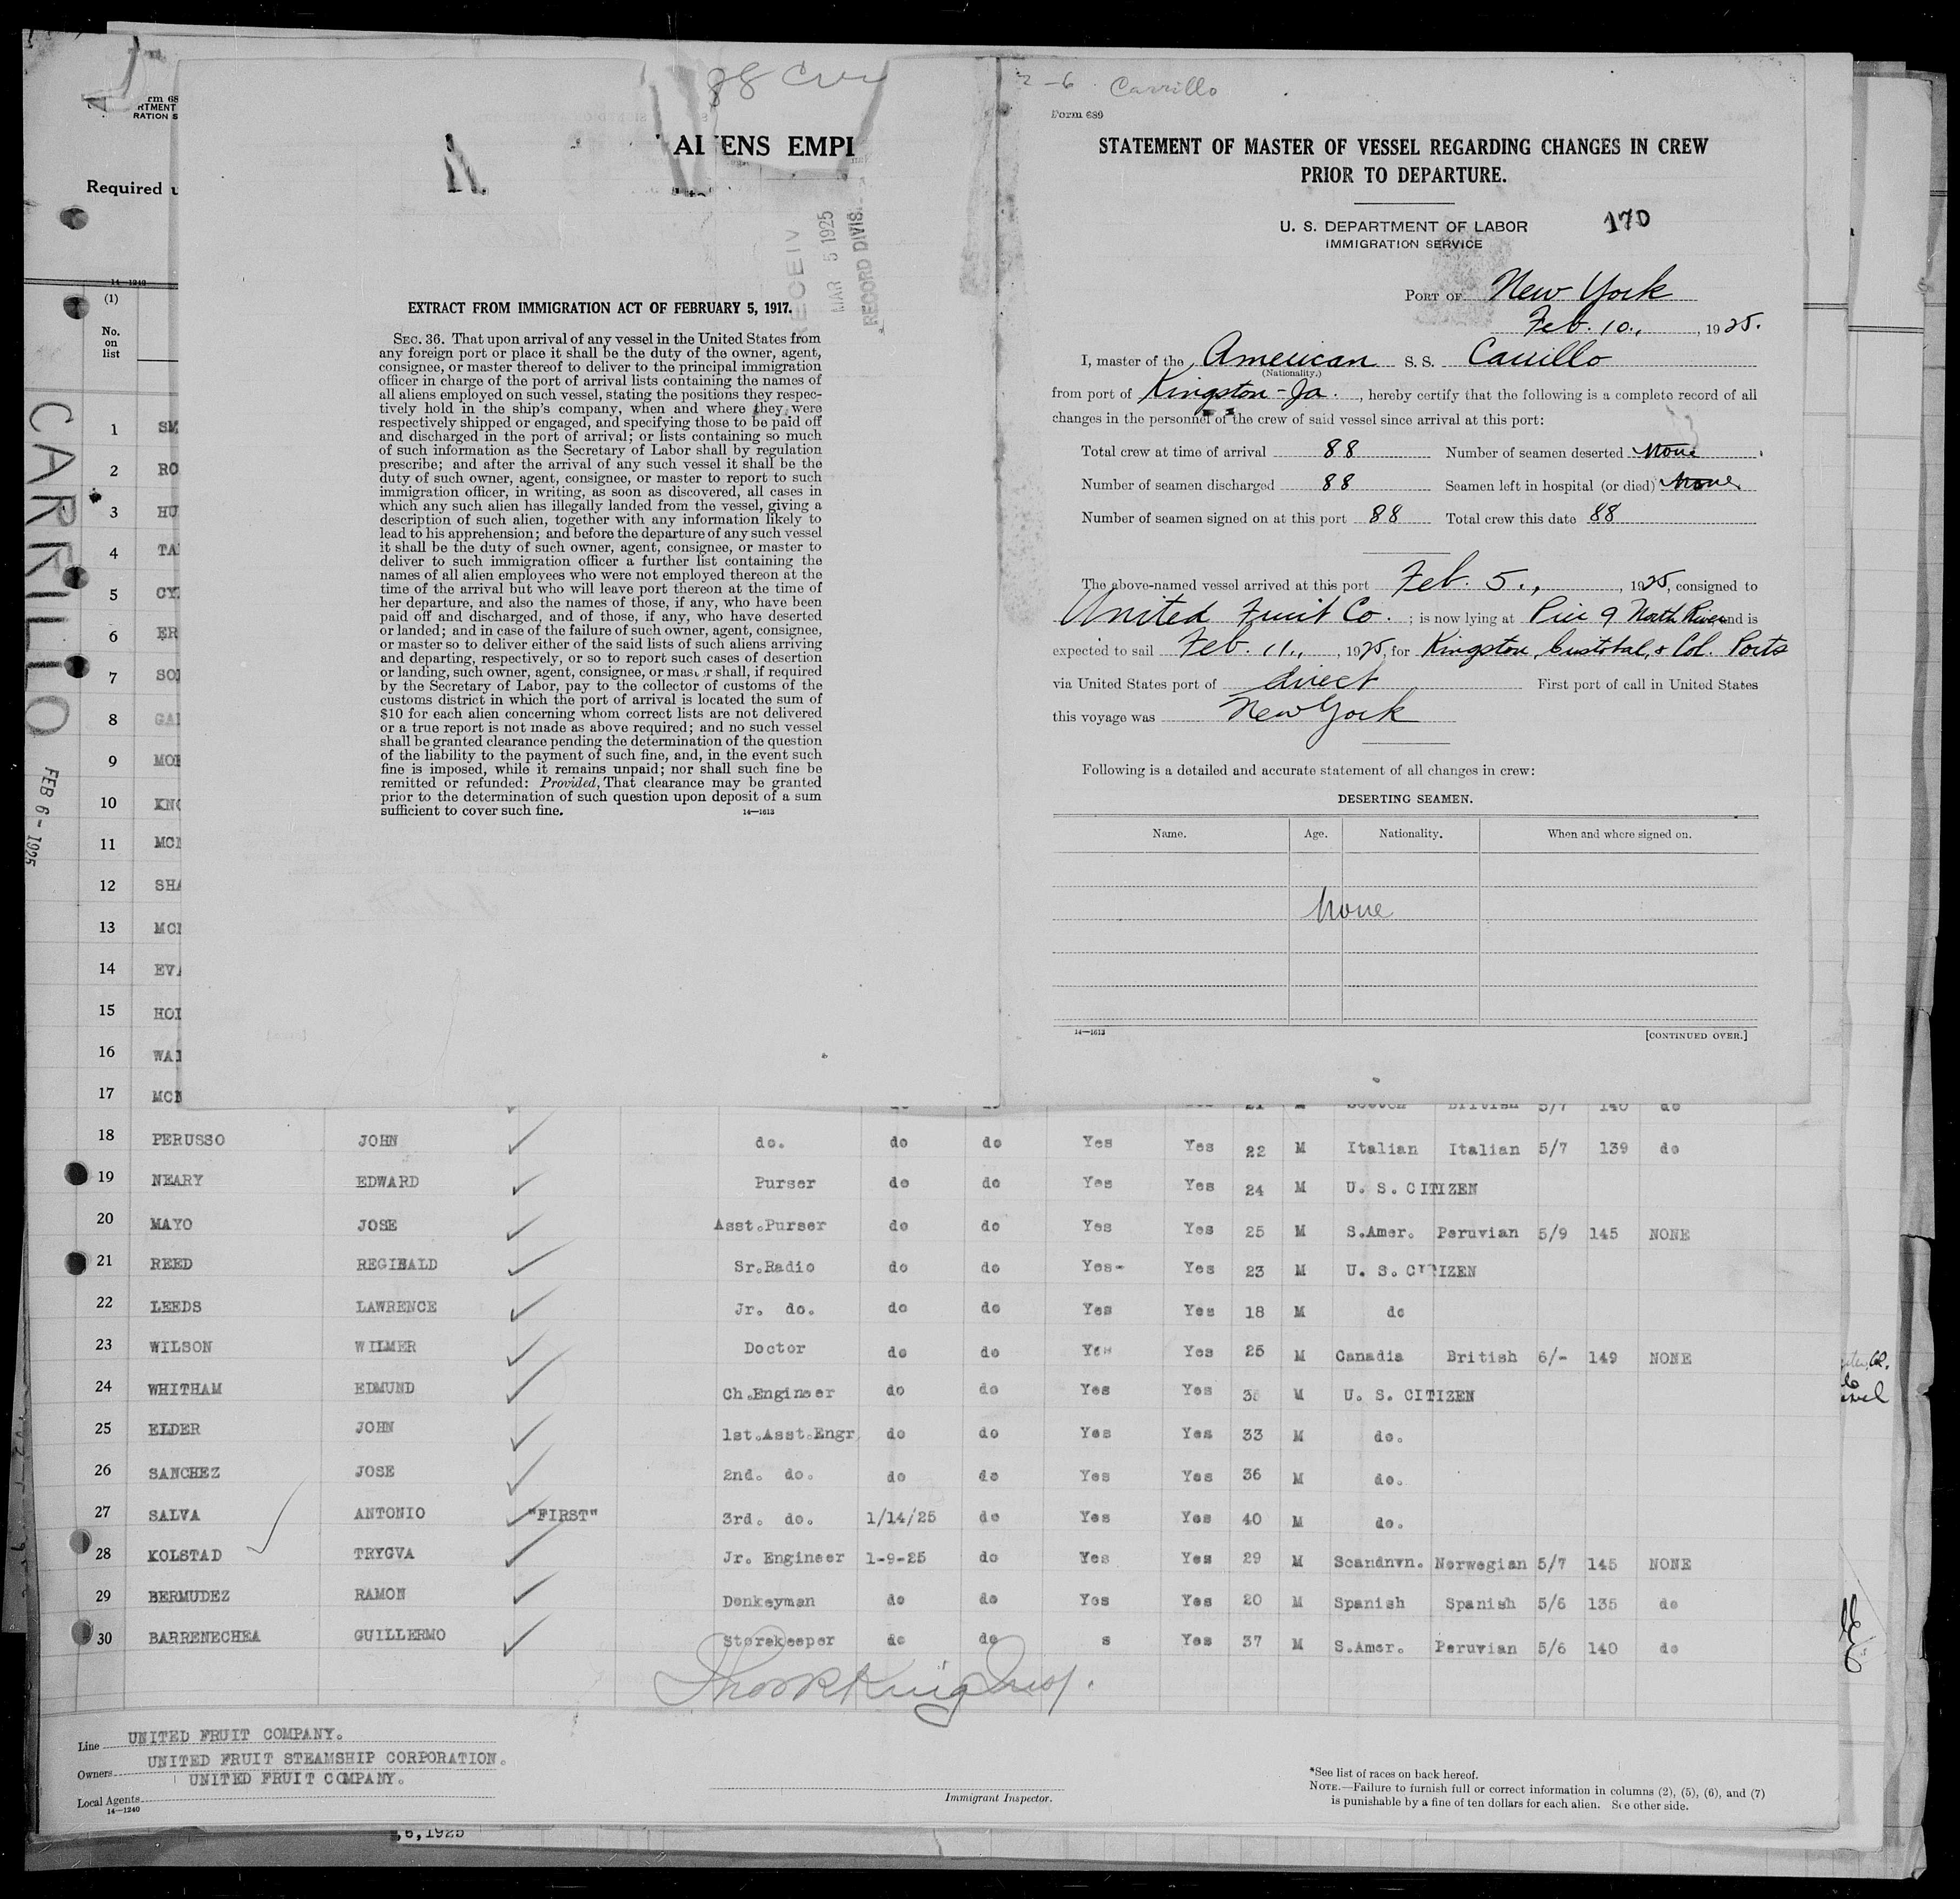 88
AL ENS EMPL
RECEIV
MAR 5 1925
RECORD DIVIS
EXTRACT FROM IMMIGRATION ACT OF FEBRUARY 5, 1917.
SEC. 36. That upon arrival of any vessel in the United States from
any foreign port or place it shall be the duty of the owner, agent,
consignee, or master thereof to deliver to the principal immigration
officer in charge of the port of arrival lists containing the names of
all aliens employed on such vessel, stating the positions they respec-
tively hold in the ship's company, when and where they were
respectively shipped or engaged, and specifying those to be paid off
and discharged in the port of arrival; or lists containing so much
of such information as the Secretary of Labor shall by regulation
prescribe; and after the arrival of any such vessel it shall be the
duty of such owner, agent, consignee, or master to report to such
immigration officer, in writing, as soon as discovered, all cases in
which any such alien has illegally landed from the vessel, giving a
description of such alien, together with any information likely to
lead to his apprehension; and before the departure of any such vessel
it shall be the duty of such owner, agent, consignee, or master to
deliver to such immigration officer a further list containing the
names of all alien employees who were not employed thereon at the
time of the arrival but who will leave port thereon at the time of
her departure, and also the names of those, if any, who have been
paid off and discharged, and of those, if any, who have deserted
or landed; and in case of the failure of such owner, agent, consignee,
or master so to deliver either of the said lists of such aliens arriving
and departing, respectively, or so to report such cases of desertion
or landing, such owner, agent, consignee, or master shall, if required
by the Secretary of Labor, pay to the collector of customs of the
customs district in which the port of arrival is located the sum of
$10 for each alien concerning whom correct lists are not delivered
or a true report is not made as above required; and no such vessel
shall be granted clearance pending the determination of the question
of the liability to the payment of such fine, and, in the event such
fine is imposed, while it remains unpaid; nor shall such fine be
remitted or refunded: Provided, That clearance may be granted
prior to the determination of such question upon deposit of a sum
sufficient to cover such fine.
14—1613
2-6 Carrillo
Form 689
STATEMENT OF MASTER OF VESSEL REGARDING CHANGES IN CREW
PRIOR TO DEPARTURE.
U. S. DEPARTMENT OF LABOR
IMMIGRATION SERVICE
170
PORT OF New York
Feb. 10., , 1925.
I, master of the American S. S. Carrillo
(Nationality.)
from port of Kingston - Ja. , hereby certify that the following is a complete record of all
changes in the personnel of the crew of said vessel since arrival at this port:
Total crew at time of arrival 88 Number of seamen deserted None
Number of seamen discharged 88 Seamen left in hospital (or died) None
Number of seamen signed on at this port 88 Total crew this date 88
The above-named vessel arrived at this port Feb. 5., , 1925, consigned to
United Fruit Co. ; is now lying at Pier 9 North River and is
expected to sail Feb. 11., , 1925, for Kingston, Cristobal, & Col. Ports
via United States port of direct First port of call in United States
this voyage was New York
Following is a detailed and accurate statement of all changes in crew:
DESERTING SEAMEN.
Name. Age. Nationality. When and where signed on.
None
14—1613 [CONTINUED OVER.]
rm 68
RTMENT
RATION S
Required u
14—1240
(1)
No.
on
list
CARRILLO
FEB 6 - 1925
1 SM
2 RO
3 HU
4 TA
5 CY
6 ER
7 SO
8 GA
9 MO
10 KNO
11 MC
12 SHA
13 MC
14 EVA
15 HO
16 WA
17 MCN 21 M Scotch British 5/7 140 do
18 PERUSSO JOHN do. do do Yes Yes 22 M Italian Italian 5/7 139 do
19 NEARY EDWARD Purser do do Yes Yes 24 M U. S. CITIZEN
20 MAYO JOSE Asst.Purser do do Yes Yes 25 M S.Amer. Peruvian 5/9 145 NONE
21 REED REGINALD Sr.Radio do do Yes- Yes 23 M U. S. CITIZEN
22 LEEDS LAWRENCE Jr. do. do do Yes Yes 18 M do
23 WILSON WILMER Doctor do do Yes Yes 25 M Canadia British 6/- 149 NONE
24 WHITHAM EDMUND Ch.Engineer do do Yes Yes 35 M U. S. CITIZEN
25 ELDER JOHN 1st.Asst.Engr do do Yes Yes 33 M do.
26 SANCHEZ JOSE 2nd. do. do do Yes Yes 36 M do.
27 SALVA ANTONIO "FIRST" 3rd. do. 1/14/25 do Yes Yes 40 M do.
28 KOLSTAD TRYGVA Jr. Engineer 1-9-25 do Yes Yes 29 M Scandnvn. Norwegian 5/7 145 NONE
29 BERMUDEZ RAMON Donkeyman do do Yes Yes 20 M Spanish Spanish 5/6 135 do
30 BARRENECHEA GUILLERMO Storekeeper do do s Yes 37 M S.Amer. Peruvian 5/6 140 do
Line UNITED FRUIT COMPANY.
Owners UNITED FRUIT STEAMSHIP CORPORATION.
Local Agents UNITED FRUIT COMPANY.
14—1240
Immigrant Inspector.
*See list of races on back hereof.
NOTE.—Failure to furnish full or correct information in columns (2), (5), (6), and (7)
is punishable by a fine of ten dollars for each alien. See other side.
6,1925